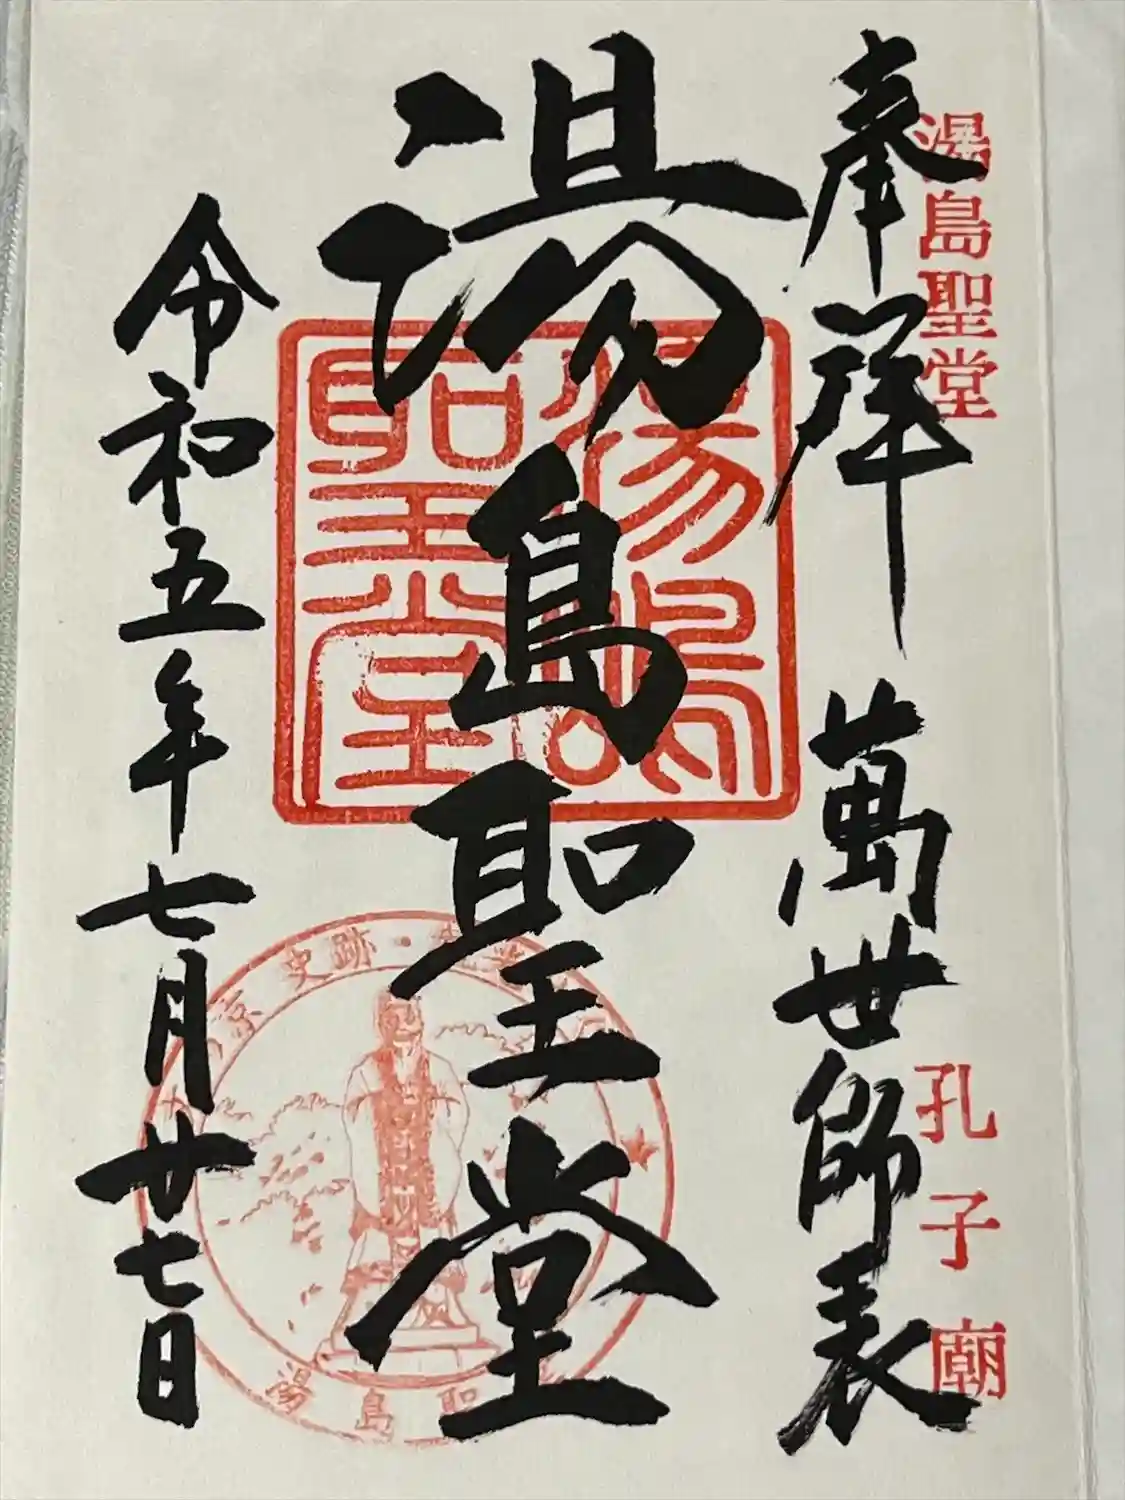 湯島聖堂
孔子廟
奉拝 萬世師表
湯島聖堂
湯島聖堂
令和五年七月廿七日
京 史跡・
湯島聖